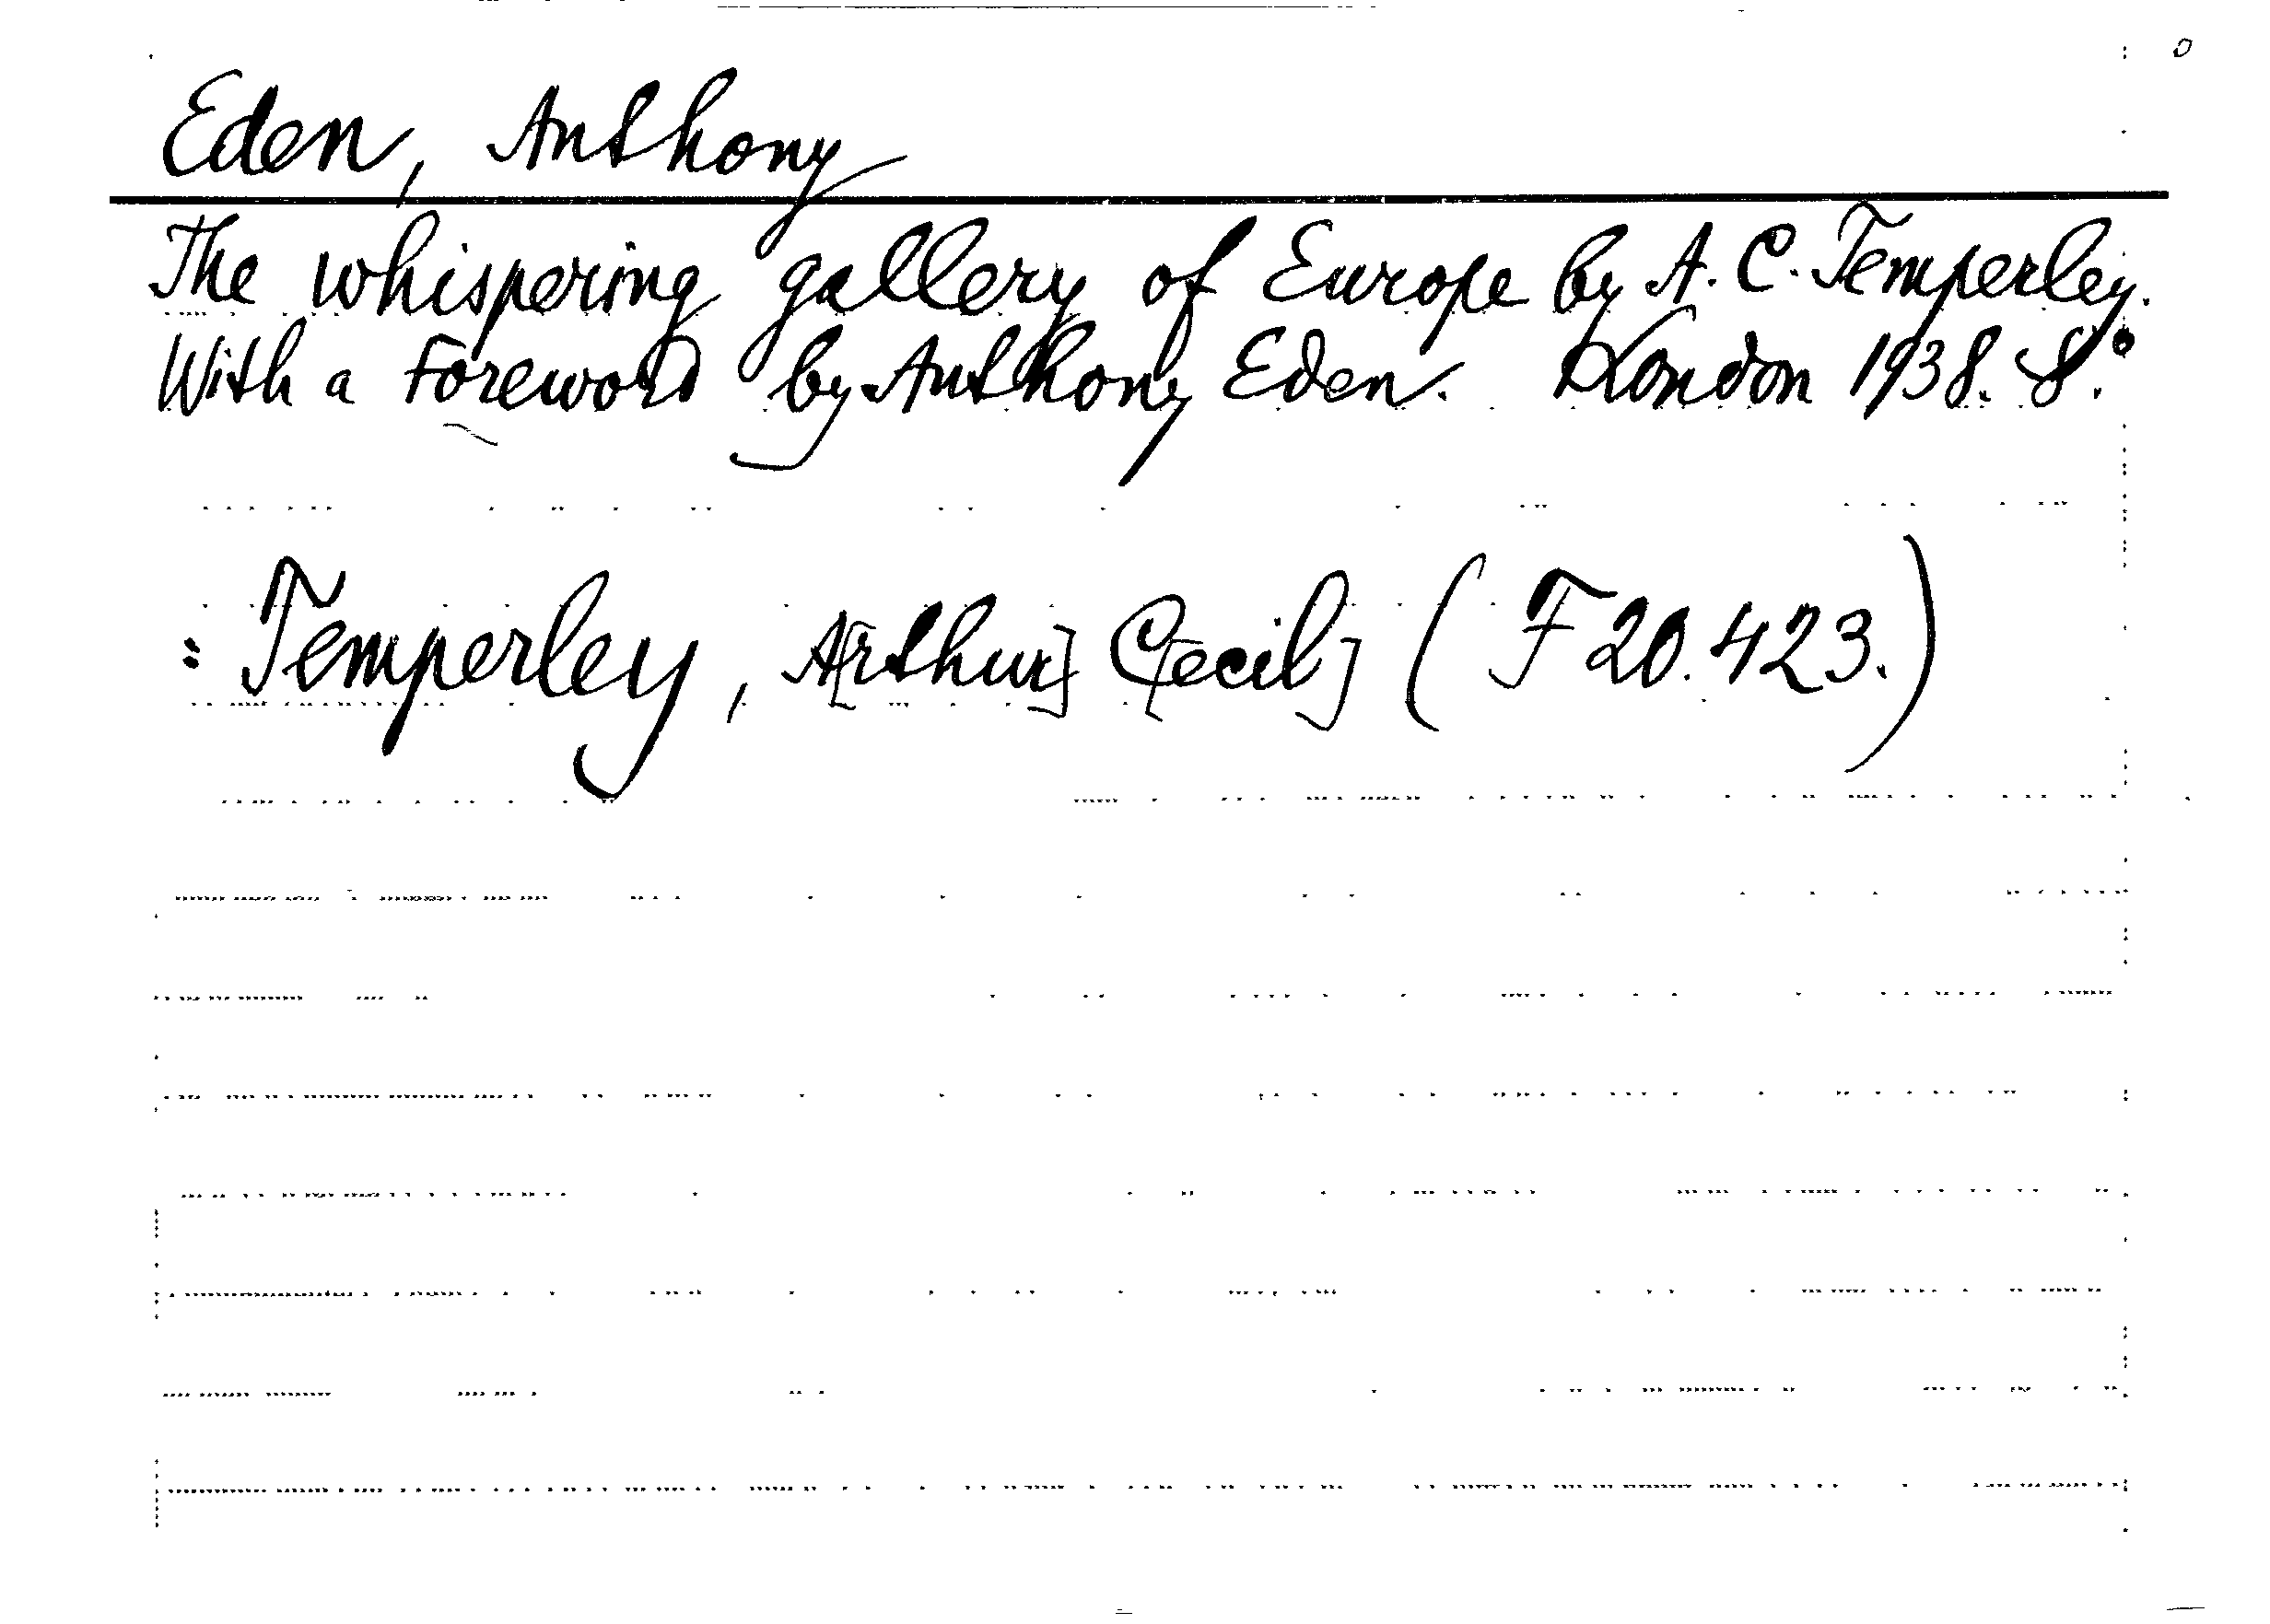 Eden, Anthony
The whispering gallery of Europe by A. C. Temperley.
With a Foreword by Anthony Eden. London 1938. 8.°
: Temperley, A[rthur] C[ecil] (F 20.423.)